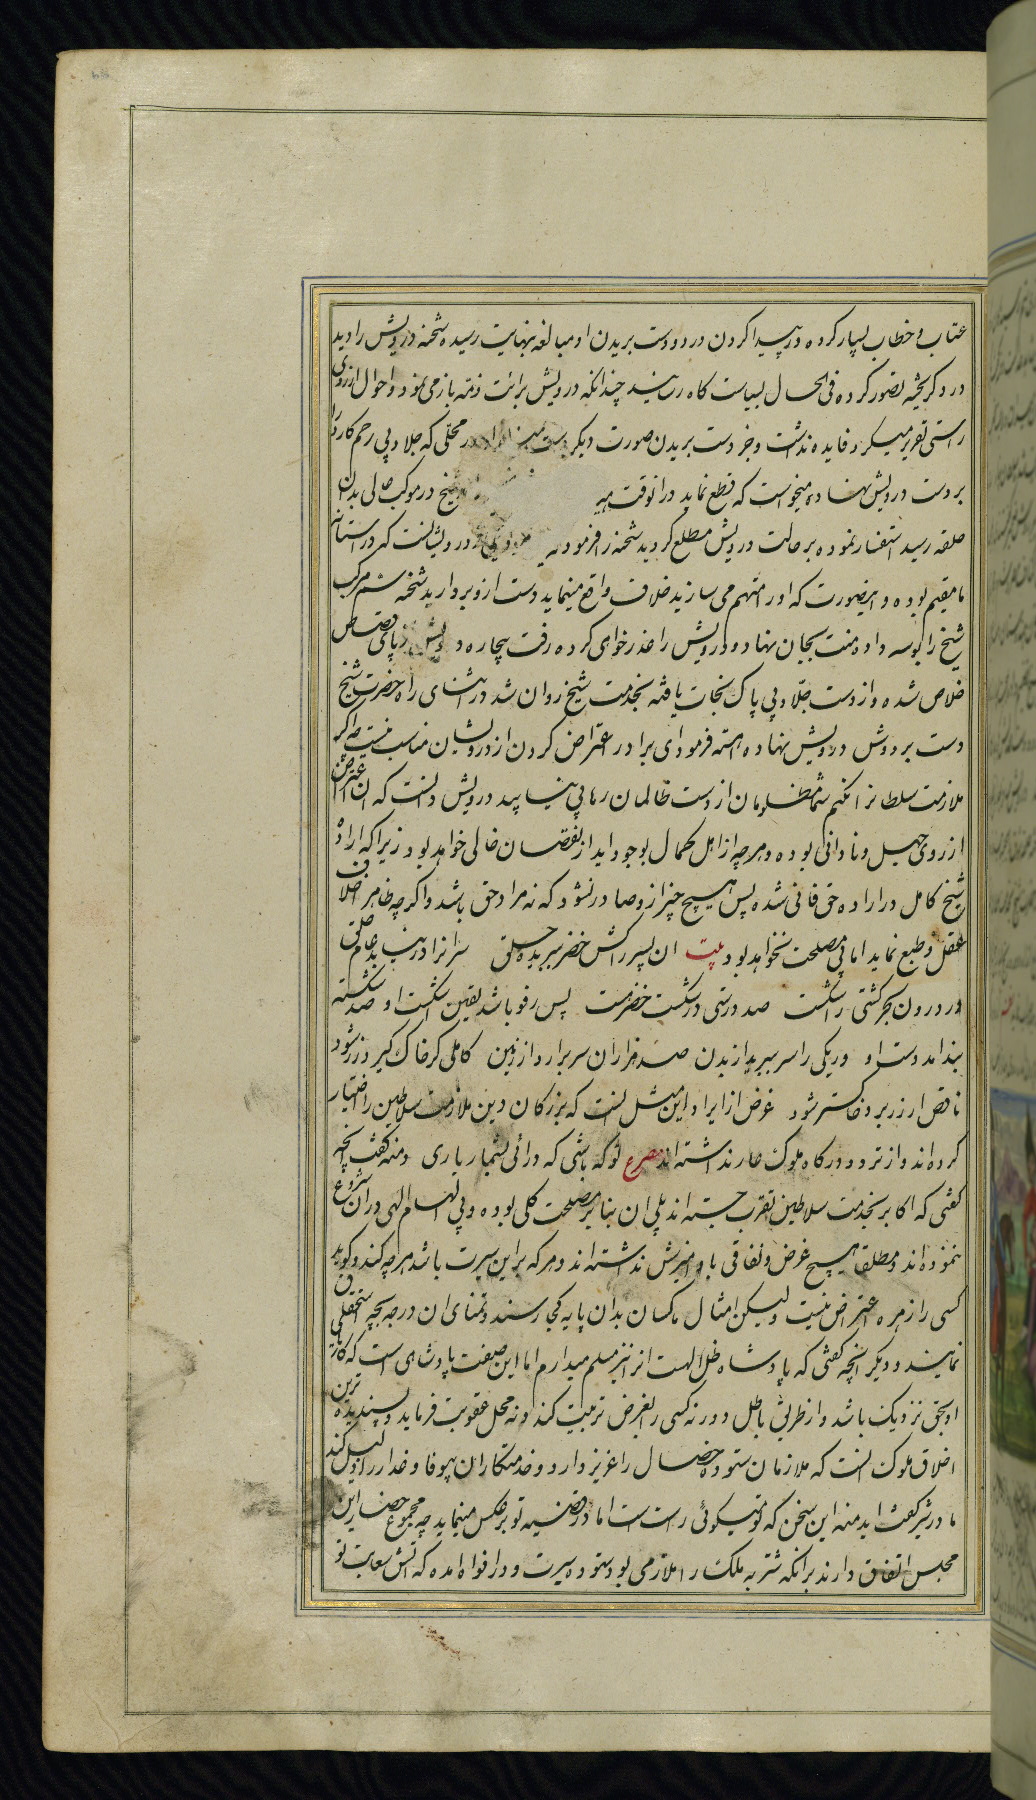 عتاب و خطاب بسیار کرده در پیدا کردن درد و دست بریدن او مبالغه بنهایت رسیده شحنه درویش را دید
درد گریخته تصور کرده فی الحال بسیاست کاه رسانید چندانکه درویش برائت ذمه باز می نمود و احوال از روی
راستی تقریر میکرد فایده نداشت و جز دست بریدن صورت دیگر در محلی که جلاد بی رحم کارد را
بر دست درویش نهاده میخواست که قطع نماید در انوقت شیخ در موکب عالی بدان
حلقه رسید استفسار نموده بر حالت درویش مطلع کردید شحنه را فرمود درویشانست که در آستانه
ما مقیم بوده و اینصورت که او را متهم می سازید خلاف واقع مینماید دست ازو بردارید شحنه سم مرکب
شیخ را بوسه داده منت بجان نهاد و درویش را عذرخواهی کرده رفت بیچاره درویش از پای قصاص
خلاص شده و از دست جلاد بی باک نجات یافته بخدمت شیخ روان شد در اثنای راه حضرت شیخ
دست بر دوش درویش نهاده آهسته فرمود ای برادر اعتراض کردن از درویشان مناسب نیست چه اگر
ملازمت سلطان نکنم شما مظلومان از دست ظالمان رهایی نیابید درویش دانست که آن اعتراض
از روی جهل و نادانی بوده و هرچه از اهل کمال بوجود اید از نقصان خالی خواهد بود زیرا که اراده
شیخ کامل در اراده حق فانی شده پس هیچ چیز ازو صادر نشود که نه مراد حق باشد و اگرچه ظاهر خلاف
عقل و طبع نماید اما بی مصلحت نخواهد بود بیت ان پسر را کش خضر ببرید حلق سر انرا در نیابد عام خلق
در درون بحر کشتی را شکست صد درستی در شکست خضر هست پس رفو باشد یقین اشکست او صد شکسته
بندامد دست او ور یکی را سر ببرید از بدن صد هزاران سر برارد از زمین کاملی کر خاک کیرد زر شود
ناقص ار زر برد خاکستر شود غرض از ایراد این مثل آنست که بزرکان دین ملازمت سلاطین را اختیار
کرده اند و از تردد درکاه ملوک عار نداشته اند مصرع تو که باشی که درائی بشمار یاری دمنه کفت آنچه
کفتی که اکابر بخدمت سلاطین تقرب جسته اند بلی ان بنا بر مصلحت کلی بوده و بی الهام الهی دران شروع
ننموده اند و مطلقا هیچ غرض و نفاقی با او امیزش نداشته اند و هرکه براین سیرت باشد هرچه کند و کوید
کسی را زهره اعتراض نیست ولیکن امثال ما کسان بدان پایه کجا رسند و تمنای ان درجه بچه استحقاق
نمایند و دیکر انچه کفتی که پادشاه ظل الهست انرا نیز مسلم میدارم اما این صفت پادشاهی است که کار
او بحق نزدیک باشد و از طریق باطل دور نه کسی را بغرض تربیت کند و نه بی محل عقوبت فرماید و پسندیده ترین
اخلاق ملوک انست که ملازمان ستوده خصال را عزیز دارد و خدمتکاران بیوفا و غدار را ذلیل کند
مادر شیر کفت ای دمنه این سخن که تو میکوئی راست است اما در قضیه تو برعکس مینماید چه مجموع حضار این
مجلس اتفاق دارند برانکه شتربه ملک را ملازمی بود ستوده سیرت و در افواه امده که آتش سعایت تو